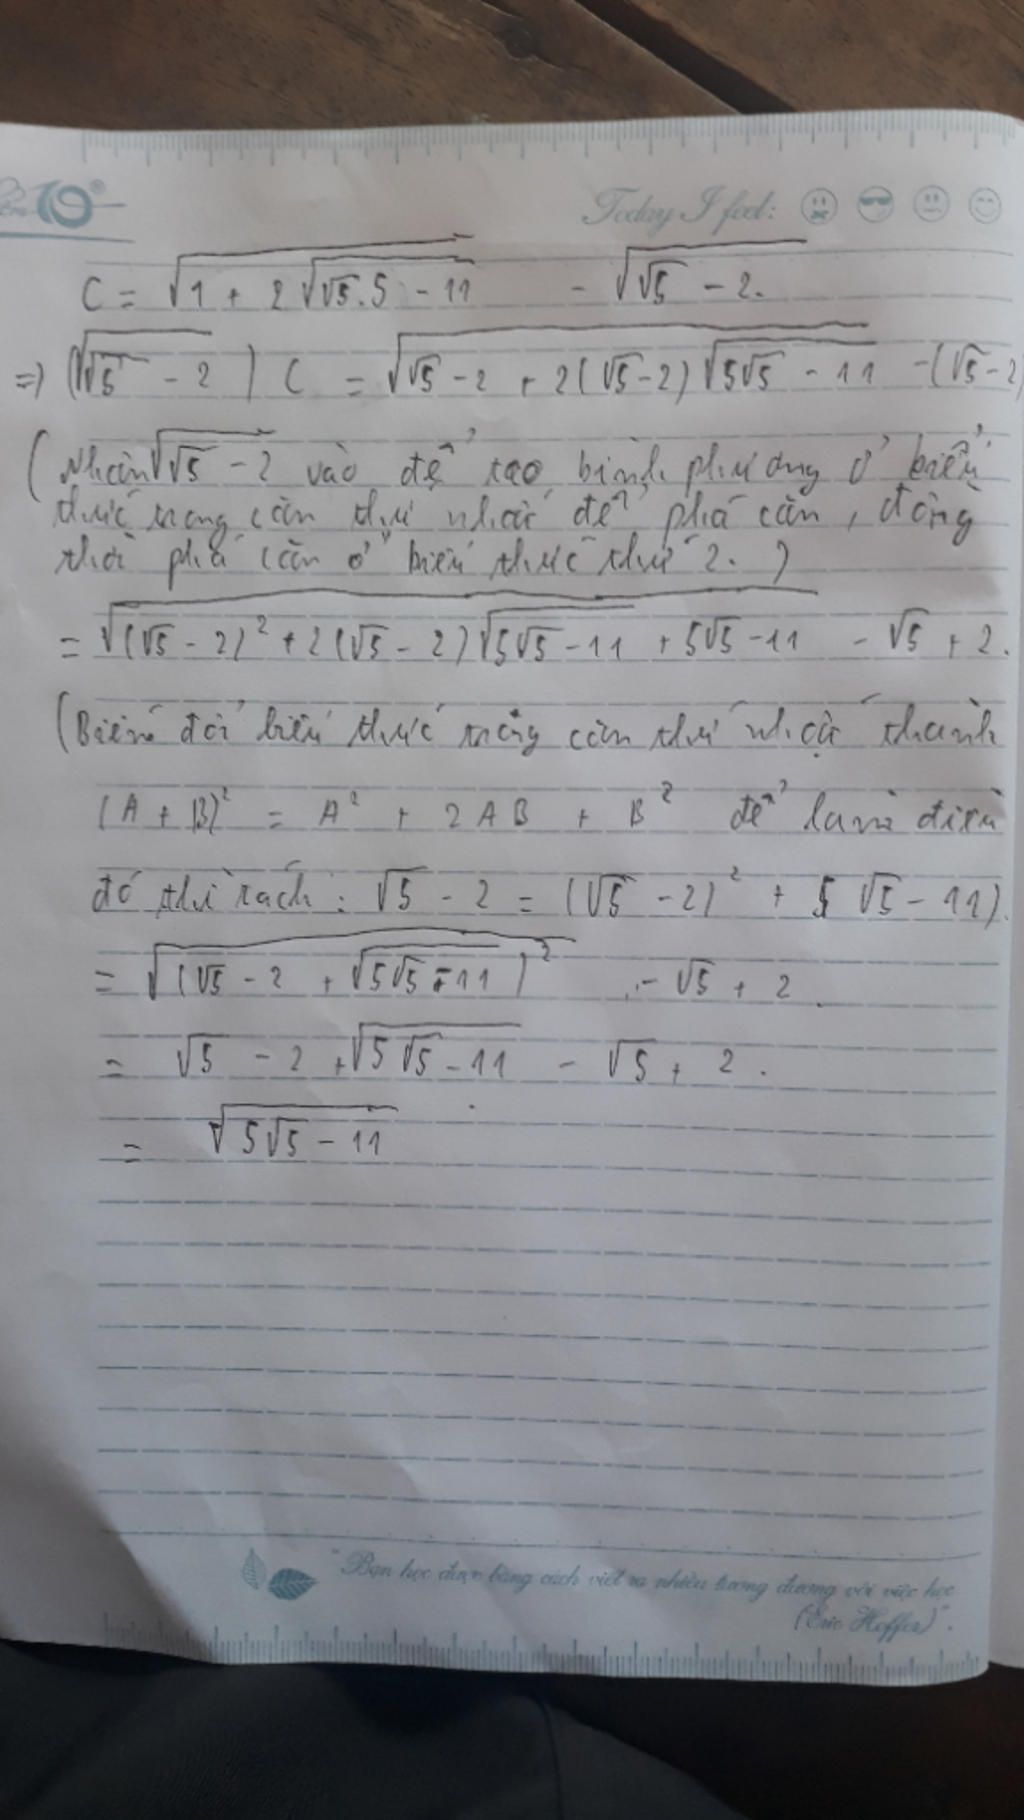 10
Today I feel:
C = √(1 + 2√(√5.5 - 11)) - √(√5 - 2).
=> (√(√5 - 2)) C = √(√5 - 2 + 2(√5 - 2)√(5√5 - 11)) - (√5 - 2)
(Nhân √(√5 - 2) vào để tạo bình phương ở biểu
thức trong căn thứ nhất để phá căn, đồng
thời phá căn ở biểu thức thứ 2. )
= √((√5 - 2)² + 2(√5 - 2)√(5√5 - 11) + 5√5 - 11) - √5 + 2.
(Biến đổi biểu thức trong căn thứ nhất thành
(A + B)² = A² + 2AB + B² để làm điều
đó thì tách : √5 - 2 = (√5 - 2)² + 5√5 - 11).
= √((√5 - 2 + √(5√5 - 11))²) - √5 + 2
= √5 - 2 + √(5√5 - 11) - √5 + 2.
= √(5√5 - 11)
"Bạn học được bằng cách viết ra nhiều tương đương với việc học
(Eric Hoffer)".